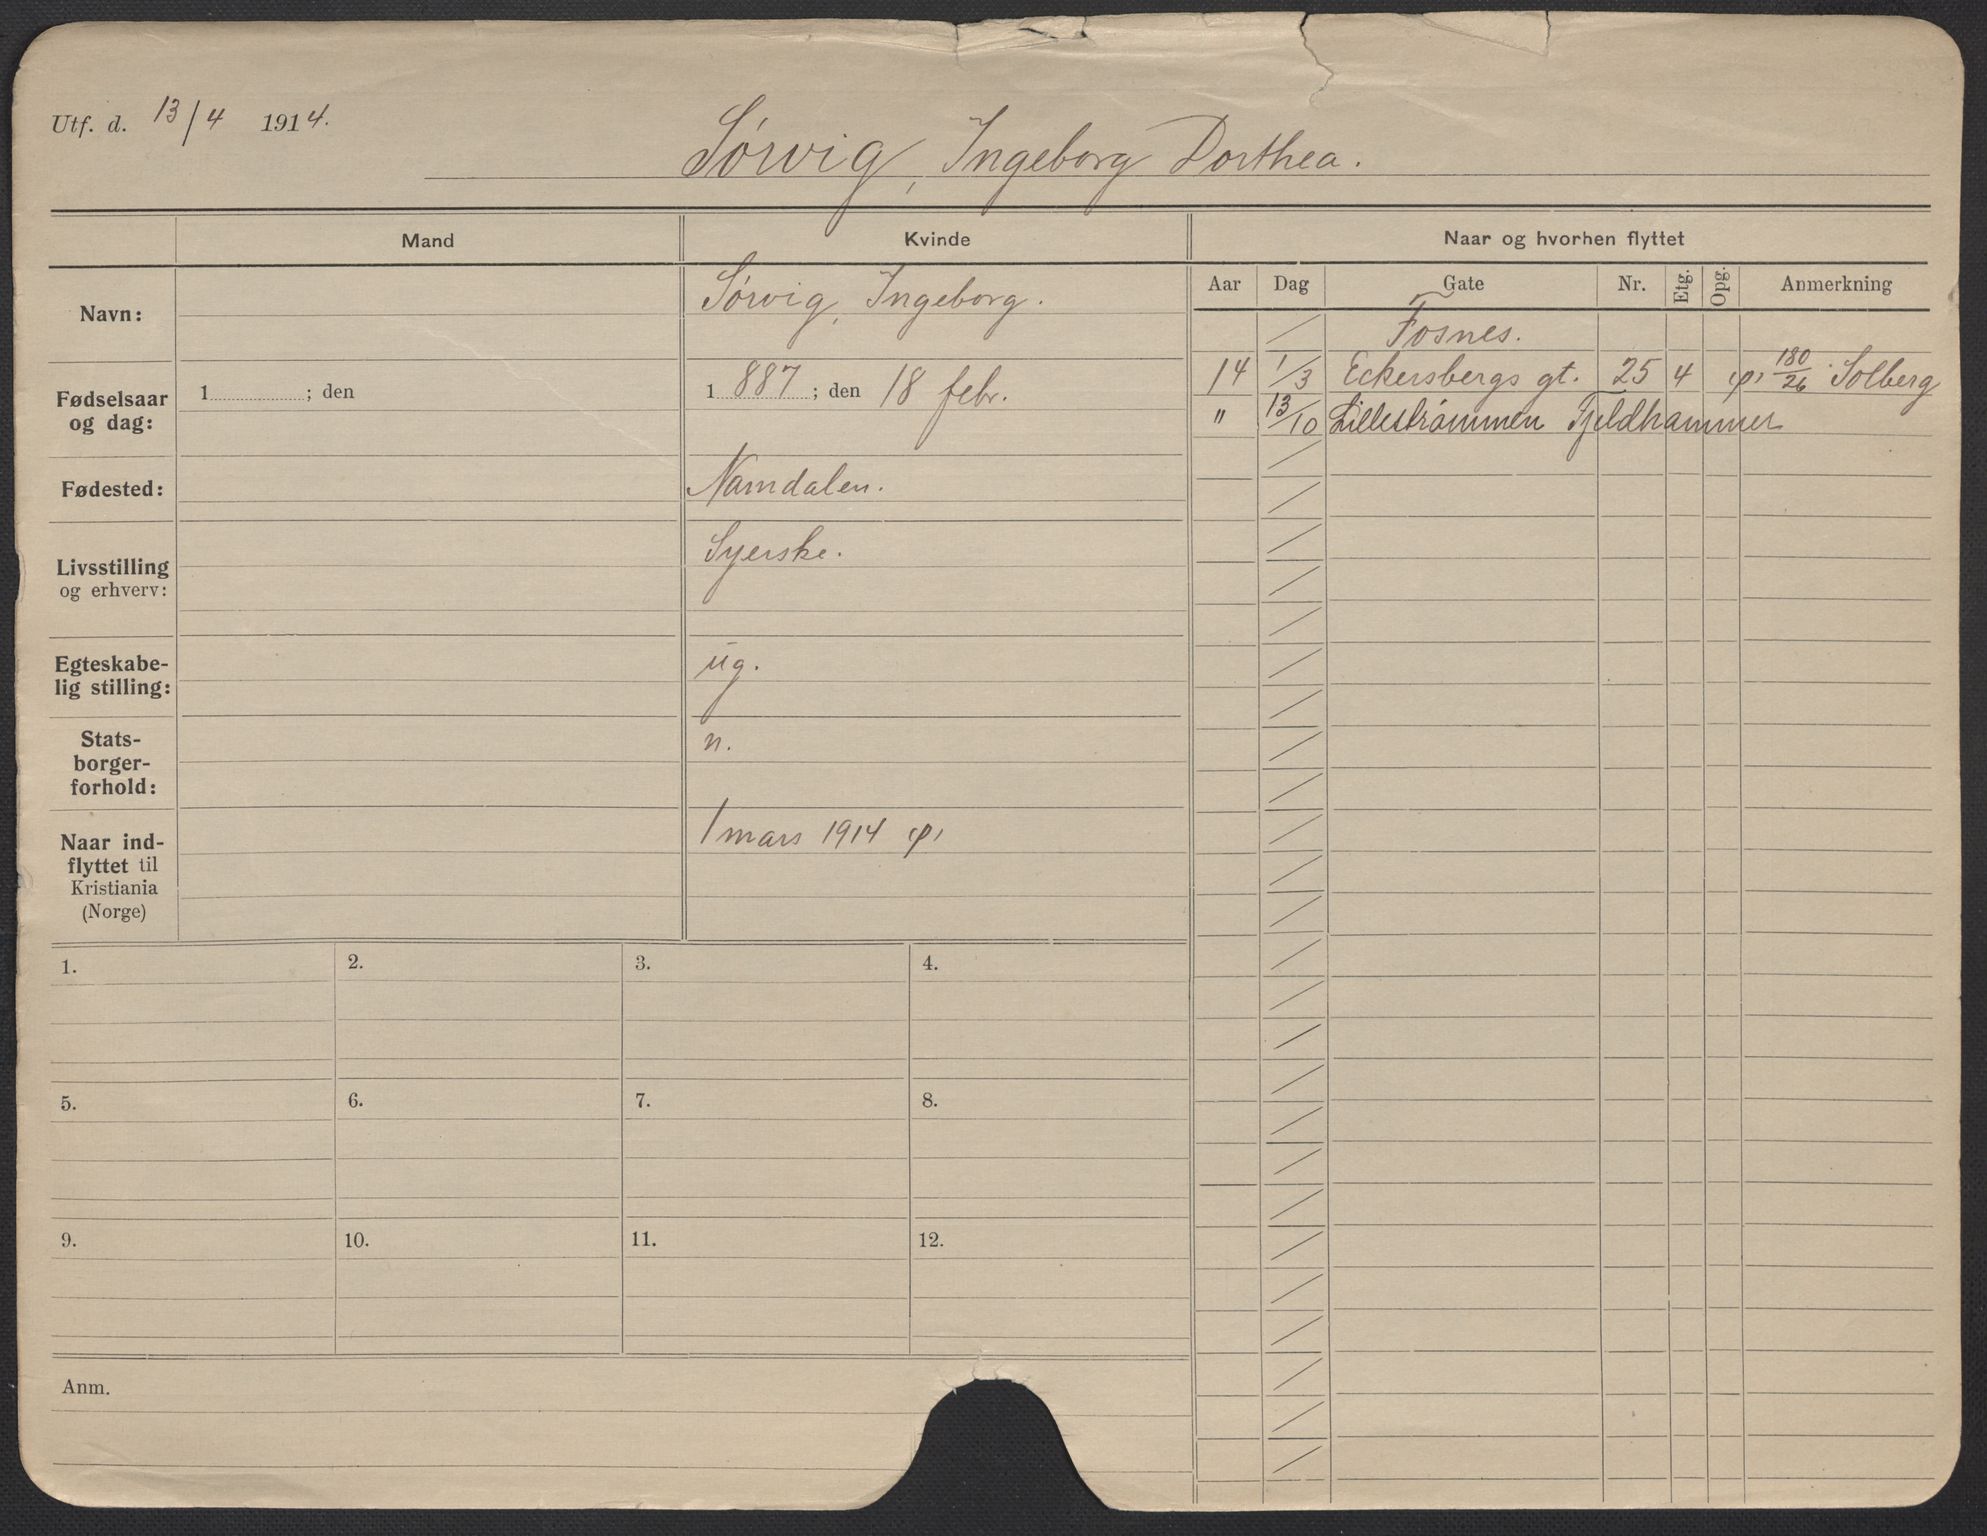 Utf. d. 13/4 1914.
Sørvig, Ingeborg Dorthea.
Mand Kvinde Naar og hvorhen flyttet
Aar Dag Gate Nr. Etg. Opg. Anmerkning
Navn: Sørvig, Ingeborg.
Fosnes.
Fødselsaar og dag: 1 ; den 1 887 ; den 18 febr.
14 1/3 Eckersbergs gt. 25 4 180/26 Solberg
" 13/10 Lillestrømmen Fjeldhammer
Fødested: Namdalen.
Livsstilling og erhverv: Syerske.
Egteskabe-
lig stilling: ug.
Stats-
borger-
forhold: n.
Naar ind-
flyttet til
Kristiania
(Norge) 1 mars 1914
1. 2. 3. 4.
5. 6. 7. 8.
9. 10. 11. 12.
Anm.